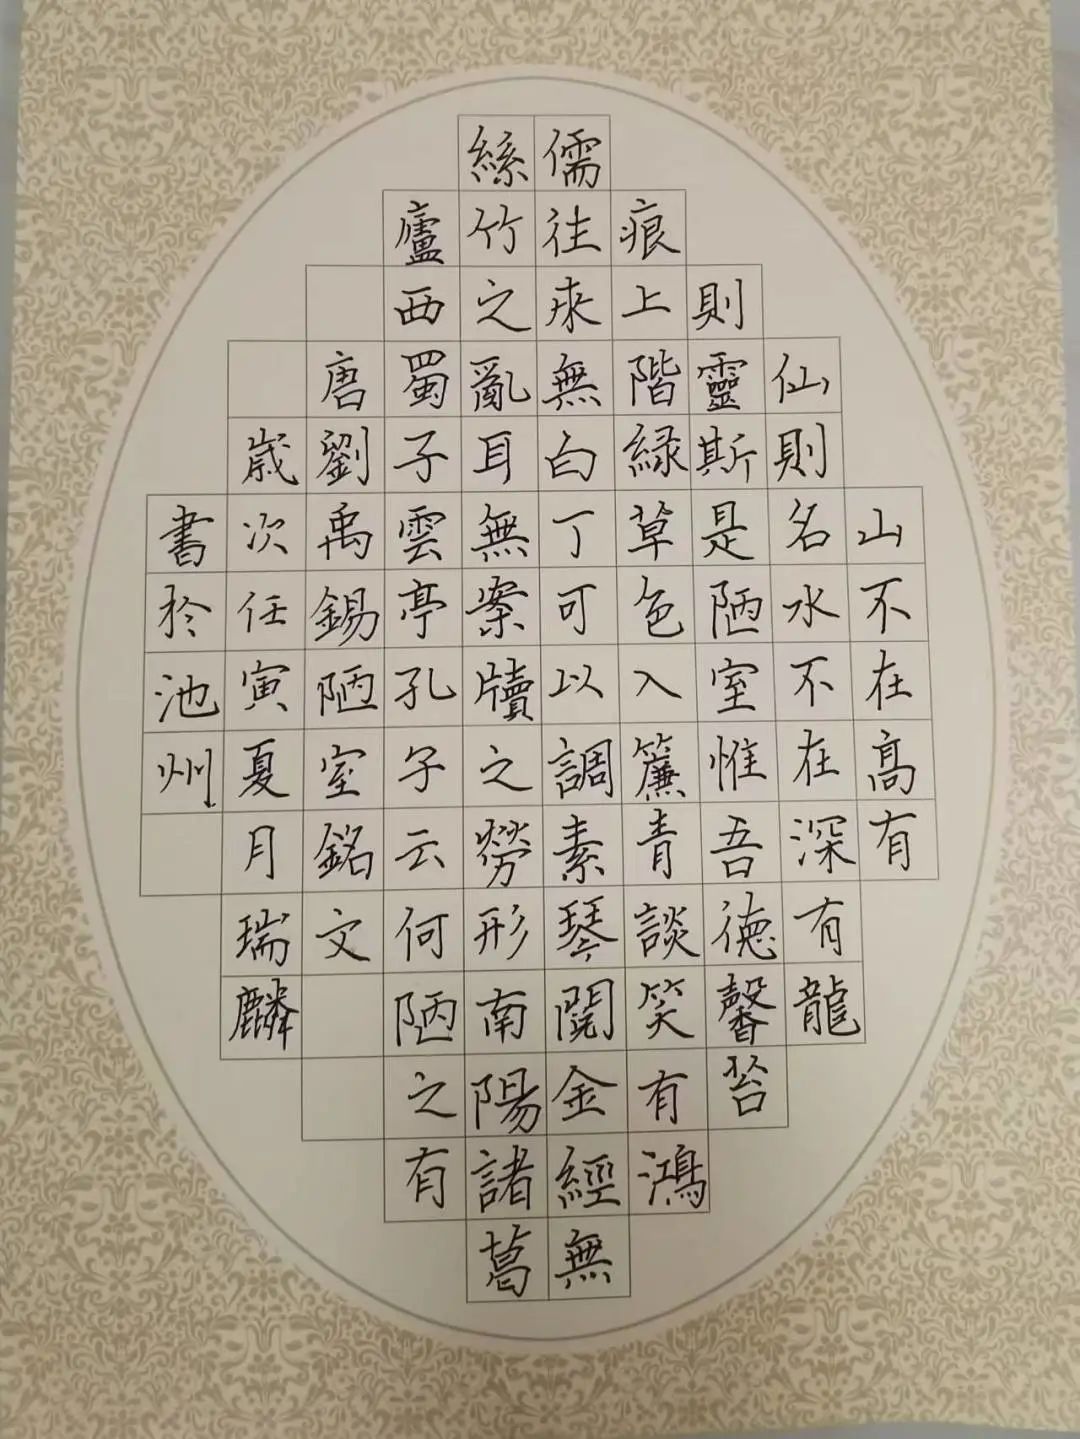 山不在高有
仙則名水不在深有龍
則靈斯是陋室惟吾德馨苔
痕上階緑草色入簾青談笑有鴻
儒往來無白丁可以調素琴閲金經無
絲竹之亂耳無案牘之勞形南陽諸葛
廬西蜀子雲亭孔子云何陋之有
唐劉禹錫陋室銘文
歲次任寅夏月瑞麟
書於池州